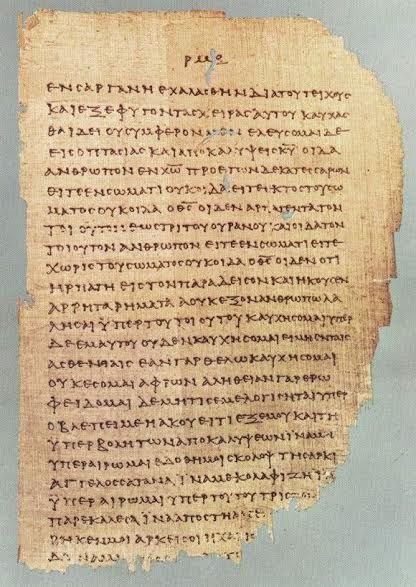 ΕΝ ΣΑΡΓΑΝΗ ΕΧΑΛΑΣΘΗΝ ΔΙΑ ΤΟΥ ΤΕΙΧΟΥΣ
ΚΑΙ ΕΞΕΦΥΓΟΝ ΤΑΣ ΧΕΙΡΑΣ ΑΥΤΟΥ ΚΑΥΧΑΣ
ΘΑΙ ΔΕΙ ΟΥ ΣΥΜΦΕΡΟΝ ΕΛΕΥΣΟΜΑΙ ΔΕ
ΕΙΣ ΟΠΤΑΣΙΑΣ ΚΑΙ ΑΠΟΚΑΛΥΨΕΙΣ Κ̅Υ̅ ΟΙΔΑ
ΑΝΘΡΩΠΟΝ ΕΝ Χ̅Ω̅ ΠΡΟ ΕΤΩΝ ΔΕΚΑΤΕΣΣΑΡΩΝ
ΕΙΤΕ ΕΝ ΣΩΜΑΤΙ ΟΥΚ ΟΙΔΑ ΕΙΤΕ ΕΚΤΟΣ ΤΟΥ ΣΩ
ΜΑΤΟΣ ΟΥΚ ΟΙΔΑ Ο Θ̅Σ̅ ΟΙΔΕΝ ΑΡΠΑΓΕΝΤΑ ΤΟΝ
ΤΟΙΟΥΤΟΝ ΕΩΣ ΤΡΙΤΟΥ ΟΥΡΑΝΟΥ ΚΑΙ ΟΙΔΑ ΤΟΝ
ΤΟΙΟΥΤΟΝ ΑΝΘΡΩΠΟΝ ΕΙΤΕ ΕΝ ΣΩΜΑΤΙ ΕΙΤΕ
ΧΩΡΙΣ ΤΟΥ ΣΩΜΑΤΟΣ ΟΥΚ ΟΙΔΑ Ο Θ̅Σ̅ ΟΙΔΕΝ ΟΤΙ
ΗΡΠΑΓΗ ΕΙΣ ΤΟΝ ΠΑΡΑΔΕΙΣΟΝ ΚΑΙ ΗΚΟΥΣΕΝ
ΑΡΡΗΤΑ ΡΗΜΑΤΑ Α ΟΥΚ ΕΞΟΝ ΑΝΘΡΩΠΩ ΛΑ
ΛΗΣΑΙ ΫΠΕΡ ΤΟΥ ΤΟΙΟΥΤΟΥ ΚΑΥΧΗΣΟΜΑΙ ΥΠΕΡ
ΔΕ ΕΜΑΥΤΟΥ ΟΥΔΕΝ ΚΑΥΧΗΣΟΜΑΙ ΕΙ ΜΗ ΕΝ ΤΑΙΣ
ΑΣΘΕΝΕΙΑΙΣ ΕΑΝ ΓΑΡ ΘΕΛΩ ΚΑΥΧΗΣΟΜΑΙ
ΟΥΚ ΕΣΟΜΑΙ ΑΦΡΩΝ ΑΛΗΘΕΙΑΝ ΓΑΡ ΕΡΩ
ΦΕΙΔΟΜΑΙ ΔΕ ΜΗ ΤΙΣ ΕΜΕ ΥΠΕΡ
Ο ΒΛΕΠΕΙ ΜΕ Η ΑΚΟΥΕΙ ΤΙ ΕΞ ΕΜΟΥ ΚΑΙ ΤΗ
ΫΠΕΡΒΟΛΗ ΤΩΝ ΑΠΟΚΑΛΥΨΕΩΝ ΪΝΑ ΜΗ
ΥΠΕΡΑΙΡΩΜΑΙ ΕΔΟΘΗ ΜΟΙ ΣΚΟΛΟΨ ΤΗ ΣΑΡΚΙ
ΑΓΓΕΛΟΣ ΣΑΤΑΝΑ ΪΝΑ ΜΕ ΚΟΛΑΦΙΖΗ Ϊ
ΥΠΕΡΑΙΡΩΜΑΙ ΥΠΕΡ ΤΟΥΤΟΥ ΤΡΙΣ
ΠΑΡΕΚΑΛΕΣΑ ΪΝΑ ΑΠΟΣΤΗ
ΚΕΝ ΜΟΙ ΑΡΚΕΙ ΣΟΙ Η